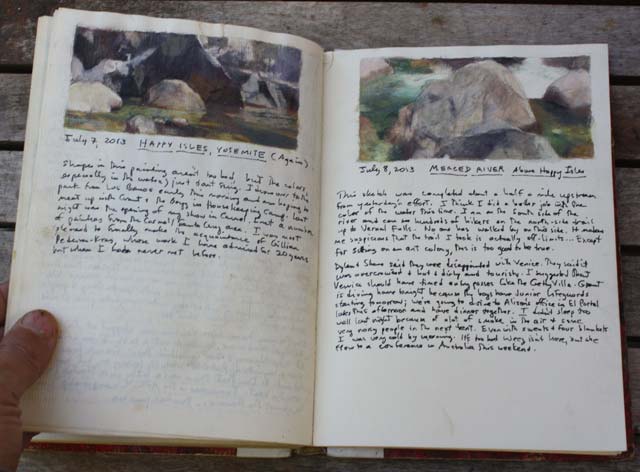 July 7, 2013 HAPPY ISLES, YOSEMITE (Again)
Shapes in this painting aren't too bad, but the colors,
especially in the water, just don't sing. I drove over to the
park from Los Banos early this morning and am hoping to
meet up with Grant & the boys in Housekeeping Camp. Last
night was the opening of my show in Carmel. I met a number
of painters from the Carmel/Santa Cruz area. I was most
pleased to finally make the acquaintance of Gillian
whose work I have admired for 20 years
but whom I had never met before.
July 8, 2013 MERCED RIVER Above Happy Isles
This sketch was completed about a half a mile upstream
from yesterday's effort. I think I did a better job with the
color of the water this time. I am on the south side of the
river and can see hundreds of hikers on the north-side trail
up to Vernal Falls. No one has walked by on this side. It makes
me suspicious that the trail I took is actually off limits... Except
for sitting on an ant colony, this is too good to be true.
Dylan & Shane said they were disappointed with Venice. They said it
was overcrowded but & dirty and touristy. I suggested that
Venice should have timed entry passes like the Getty Villa. Grant
is driving home tonight because the boys have Junior Lifeguards
starting tomorrow; we're going to drive to Alison's office in El Portal
later this afternoon and have dinner together. I didn't sleep too
well last night because of a lot of smoke in the air & some
very noisy people in the next tent. Even with sweats & four blankets
I was very cold by morning. It's too bad isn't here, but she
flew to a conference in Australia this weekend.